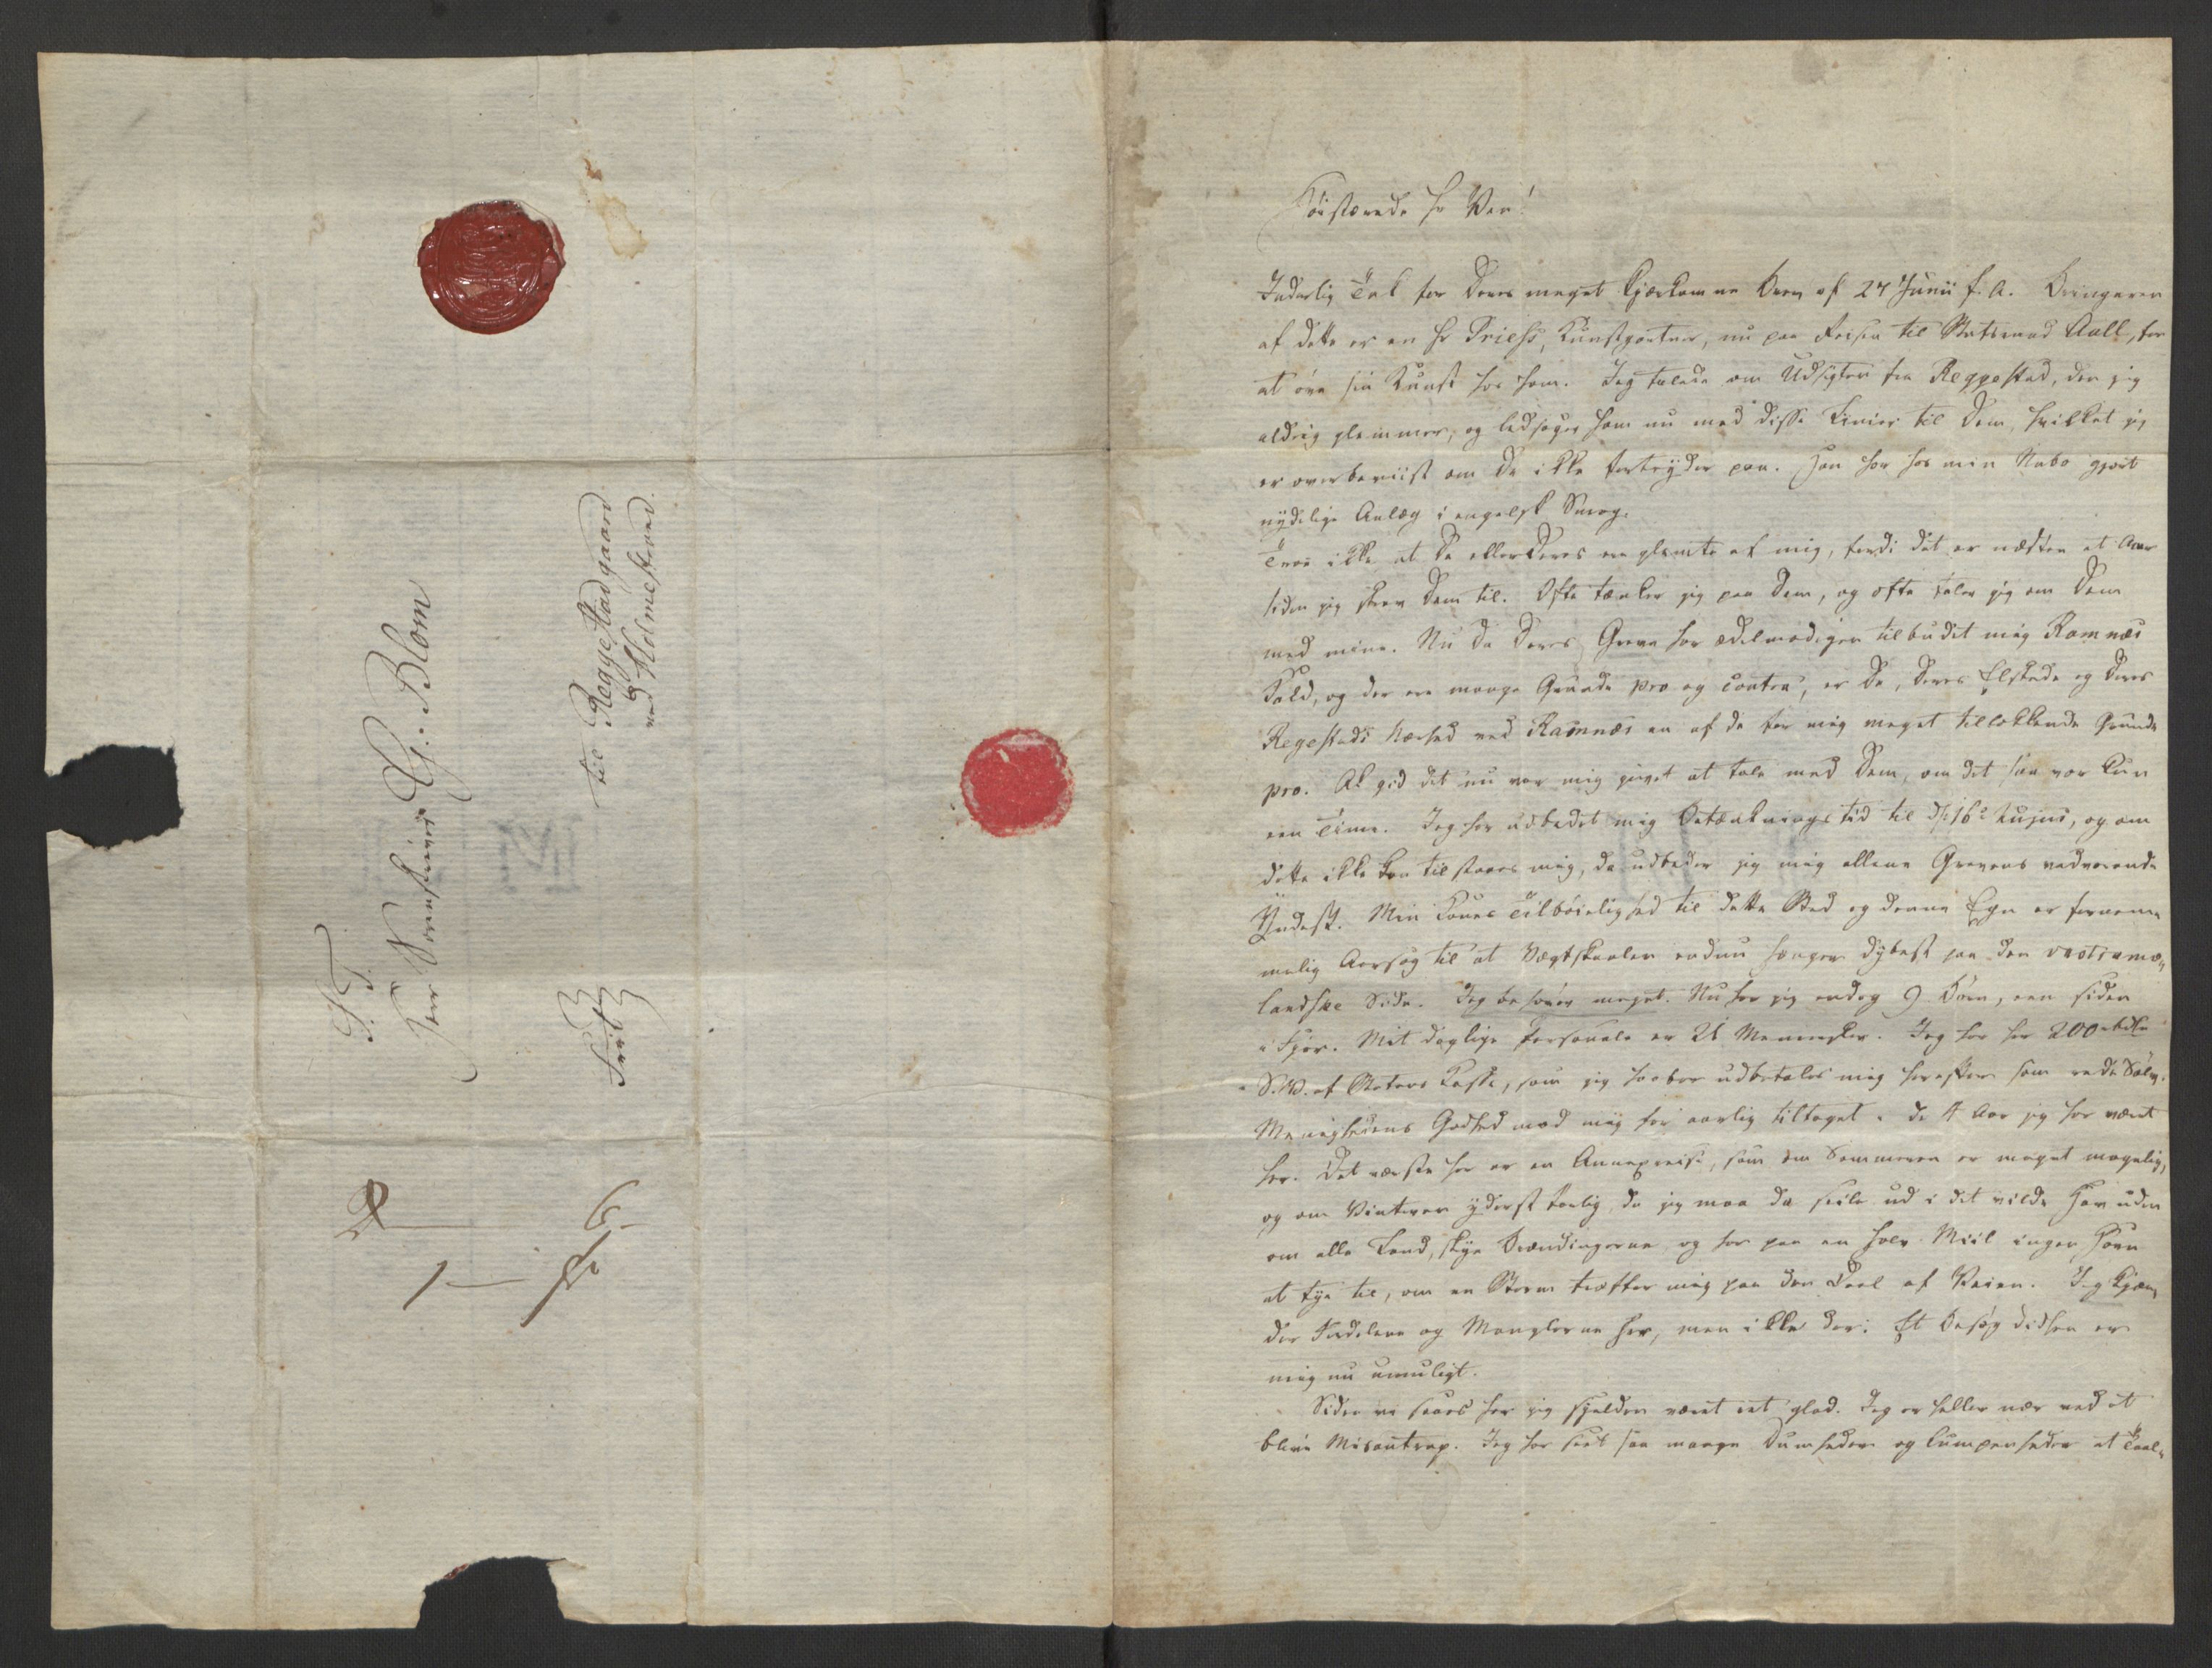 S. T.
Herr Sorenskriver G. Blom
til Reggestad gaard
ved Holmestrand.
Frit
6
1
Høistærede Hr Ven!
Inderlig Tak for Deres meget kjærkomne Brev af 27 Junii f. A. Bringeren
af dette er en Hr Driess, Kunstgartner, nu paa Reisen til Statsraad Aall, for
at øve sin Kunst hos ham. Jeg talede om Udsigten fra Reggestad, den jeg
aldrig glemmer, og ledsager ham nu med disse Linier til Dem, hvilket jeg
er overbeviist om De ikke fortryder paa. Han har hos min Nabo gjort
nydelige Anlæg i engelsk Smag.
Troe ikke at De eller Deres ere glemte af mig, fordi det er næsten et Aar
siden jeg skrev Dem til. Ofte tænker jeg paa Dem, og ofte taler jeg om Dem
med mine. Nu da Deres Greve har ædelmodigen tilbudet mig Ramnæs
Kald, og der ere mange Grunde pro og contra, er De, Deres Elskede og Deres
Regestads Nærhed ved Ramnæs en af de for mig meget tillokkende Grunde
pro. Ak gid det nu var mig givet at tale med Dem, om det saa var kun
een Time. Jeg har udbedet mig Betænkningstid til d. 16de hujus, og om
dette ikke kan tilstaaes mig, da udbeder jeg mig allene Grevens vedvarende
Yndest. Min Kones Tilbøielighed til dette Sted og denne Egn er fornem¬
melig Aarsag til at Vægtskaalen endnu hænger dybest paa den
landske Side. Jeg behøver meget. Nu har jeg endog 9 Børn, een siden
i Fjor. Mit daglige Personale er 21 Mennesker. Jeg har her 200
S.V. af Statens Kasse, som jeg haaber udbetales mig herefter som rede Sølv.
Menighedens Godhed mod mig har aarlig tiltaget i de 4 Aar jeg har været
her. Det værste her er en Annexreise, som om Sommeren er meget magelig,
og om Vinteren yderst farlig, da jeg maa da seile ud i det vilde Hav uden
om alle Land, skye Brændingerne og har paa en halv Miil ingen Havn
at tye til, om en Storm træffer mig paa den Deel af Veien. Jeg kjen¬
der Fordelene og Manglerne her, men ikke der. Et Besøg didhen er
mig nu umuligt.
Siden vi saaes har jeg sjelden været ret glad. Jeg er heller nær ved at
blive Misantrop. Jeg har seet saa mange Dumheder og Lumpenheder at Taal¬